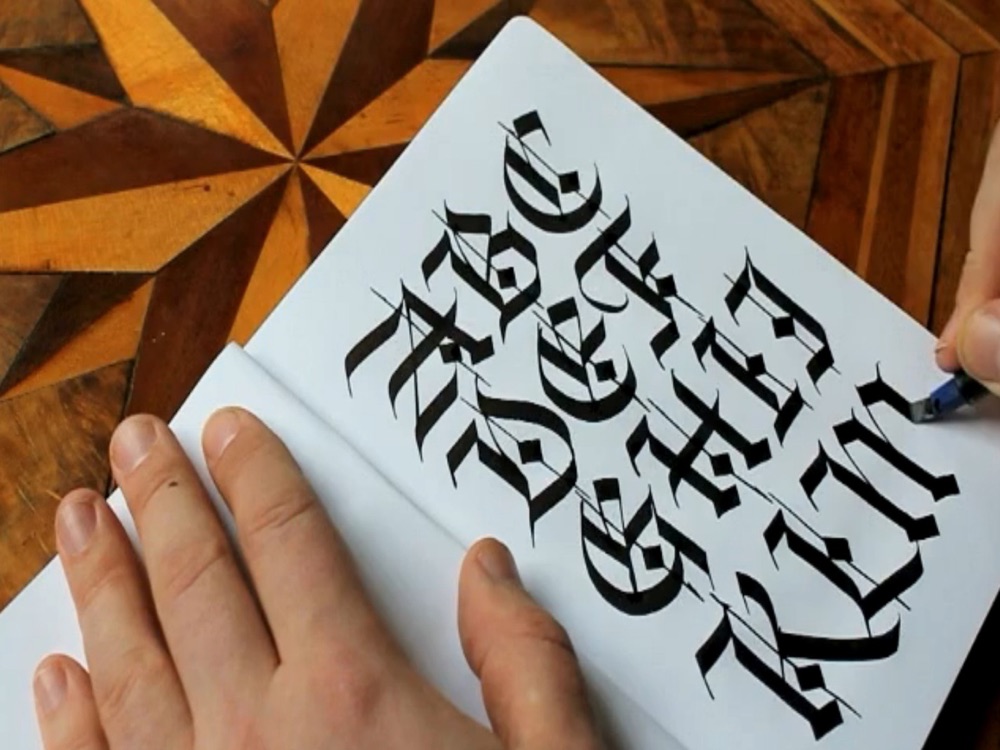 ABC
DEF
GHIJ
KLM